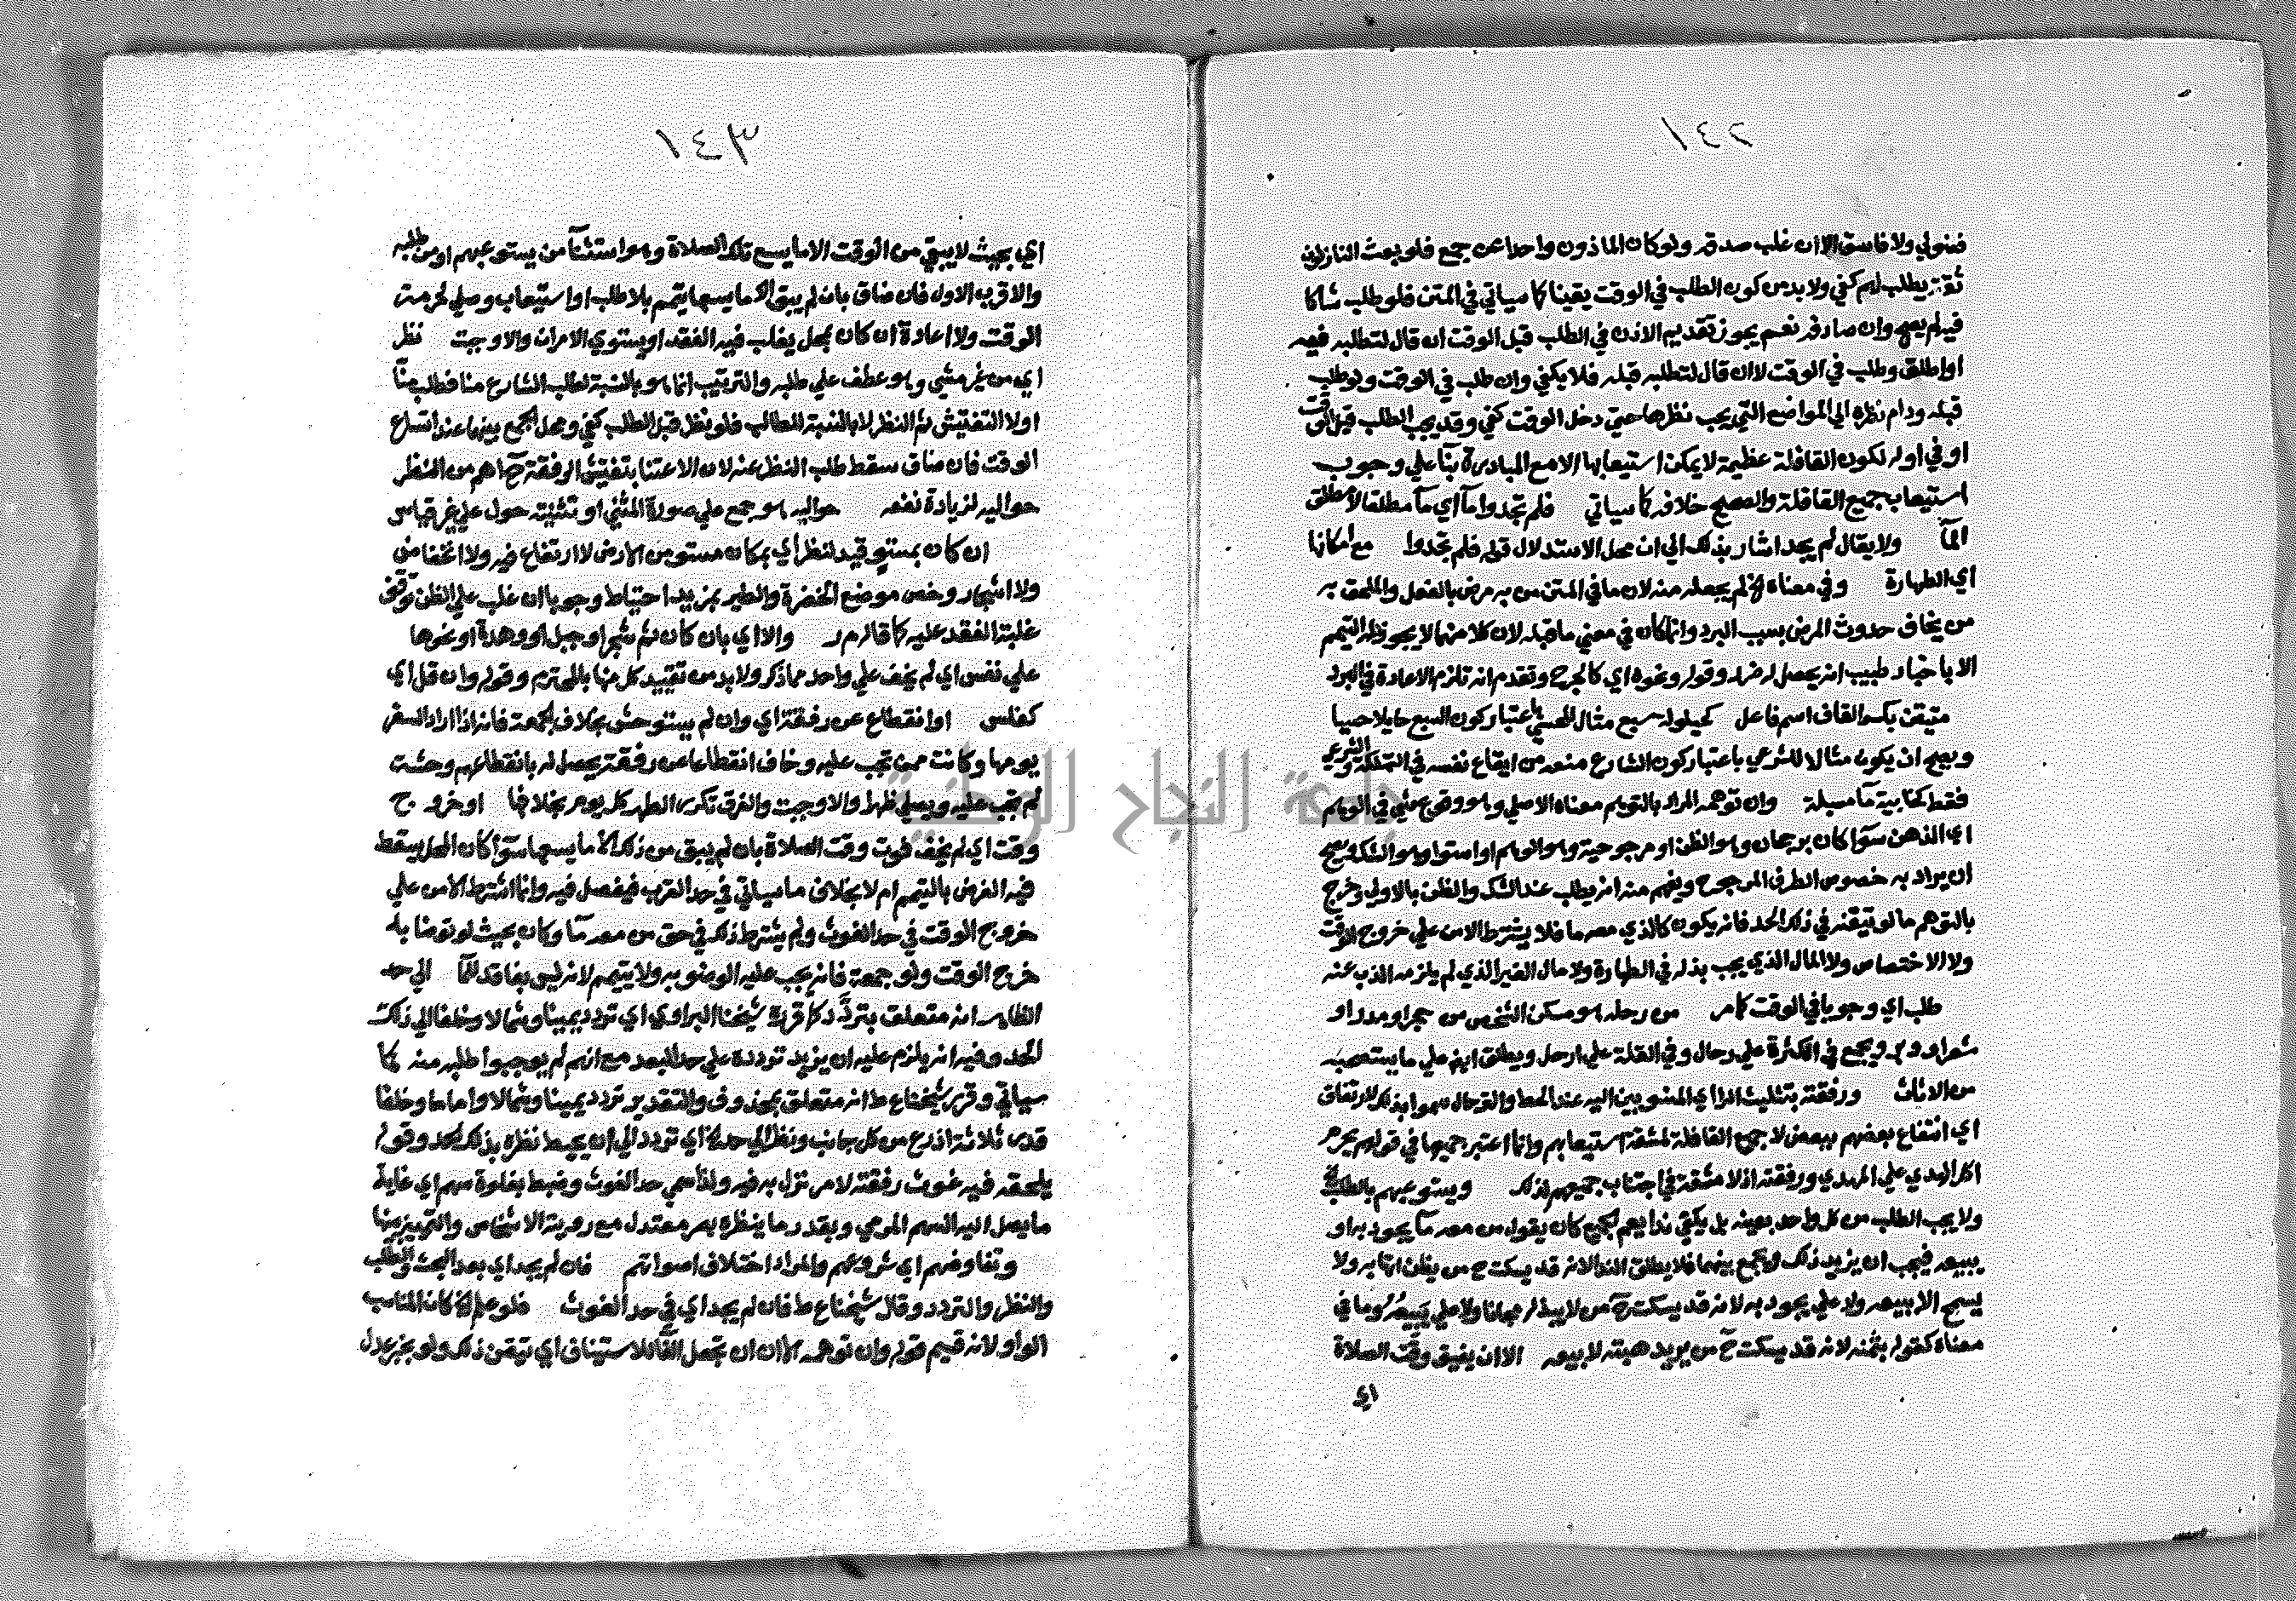 ١٤٢
فضولي ولا فاسق الا ان غلب صدقه ولو كان الماذون واحدا عن جمع فلو بعث النازلون
ثقة يطلب لهم كفي ولا بد من كون الطلب في الوقت يقينا كما سياتي في المتن فلو طلب شاكا
فيه لم يصح وان صادفه نعم يجوز تقديم الاذن في الطلب قبل الوقت ان قال لتطلبه فيه
او اطلق وطلب في الوقت لا ان قال لتطلبه قبله فلا يكفي وان طلب في الوقت ولو طلب
قبله ودام نظره الي المواضع التي يجب نظرها حتي دخل الوقت كفي وقد يجب الطلب قبل الوقت
او في اوله لكون القافلة عظيمة لا يمكن استيعابها الا مع المبادرة بنآ علي وجوب
استيعاب جميع القافلة والصحيح خلافه كما سياتي فلم تجدوا مآ اي مآ مطلقا لا مطلق
المآ ولا يقال لم يجد اشار بذلك الي ان محل الاستدلال قوله فلم تجدوا مع امكانها
اي الطهارة وفي معناه الخ لم يجعله منه لان ما في المتن من به مرض بالفعل والملحق به
من يخاف حدوث المرض بسبب البرد وانما كان في معني ما قبله لان كلا منهما لا يجوز له التيمم
الا باخبار طبيب انه يحصل له ضرر وقوله ونحوه اي كالجرح وتقدم انه تلزم الاعادة في البرد
متيقن بكسر القاف اسم فاعل كحيلولة سبع مثال للحسي باعتبار كون السبع حايلا حسيا
ويصح ان يكون مثالا للشرعي باعتبار كون الشارع منعه من ايقاع نفسه في التهلكة والشرعي
فقط كخابية مآ مسبلة وان توهمه المراد بالتوهم معناه الاصلي وهو وقوع شي في الوهم
اي الذهن سوآ كان برجحان وهو الظن او مرجوحية وهو الوهم او استوا وهو الشك ويصح
ان يراد به خصوص الطرف المرجوح ويفهم منه انه يطلب عند الشك والظن بالاولي وخرج
بالتوهم ما لو تيقنه في ذلك الحد فانه يكون كالذي معه ما فلا يشترط الامن علي خروج الوقت
ولا الاختصاص ولا المال الذي يجب بذله في الطهارة ولا مال الغير الذي لم يلزمه الذب عنه
طلب اي وجوبا في الوقت كما مر من رحله هو مسكن الشخص من حجر او مدر او
شعر او وبر ويجمع في الكثرة علي رحال وفي القلة علي ارحل ويطلق ايضا علي ما يستصحبه
من الاثاث ورفقته بتثليث الرا اي المنسوبين اليه عند الحط والترحال سموا بذلك لارتفاق
اي انتفاع بعضهم ببعض لا جميع القافلة لمشقة استيعابهم وانما اعتبر جميعها في قولهم يحرم
اكل الهدي علي المهدي ورفقته اذ لا مشقة في اجتناب جميعهم لذلك ويستوعبهم بالطلب
ولا يجب الطلب من كل واحد بعينه بل يكفي ندا يعم الجميع كان يقول من معه مآ يجود به او
يبيعه فيجب ان يزيد ذلك او يجمع بينهما فلا يطلق الندا لانه قد يسكت ح من يظن اتهابه ولا
يسمح الا ببيعه ولا علي يجود به لانه قد يسكت ح من لا يبذله مجانا ولا علي يبيعه او ما في
معناه كقوله بثمنه لانه قد يسكت ح من يريد هبته لا بيعه الا ان يضيق وقت الصلاة
اي
١٤٣
اي بحيث لا يبقي من الوقت الا ما يسع تلك الصلاة وهو استثنآ من يستوعبهم او من طلبه
والاقرب الاول فان ضاق بان لم يبق الا ما يسعها يتيمم بلا طلب او استيعاب وصلي لحرمة
الوقت ولا اعادة ان كان بمحل يغلب فيه الفقد او يستوي الامران والا وجبت نظر
اي من غير مشي وهو عطف علي طلبه والترتيب انما هو بالنسبة لطلب الشارع منا فطلب منا
اولا التفتيش ثم النظر لا بالنسبة للطالب فلو نظر قبل الطلب كفي ومحل الجمع بينهما عند اتساع
الوقت فان ضاق سقط طلب النظر عنه لان الاعتنا بتفتيش الرفقة ح اهم من النظر
حواليه لزيادة نفعه حواليه هو جمع علي صورة المثني او تثنية حول علي غير قياس
ان كان بمستو قيد لنظر اي بمكان مستو من الارض لا ارتفاع فيه ولا انخفاض
ولا اشجار وخص موضع الخضرة والطير بمزيد احتياط وجوبا ان غلب علي الظن توقف
غلبة الفقد عليه كما قاله م ر والا اي بان كان ثم شجر او جبل او وهدة او نحوها
علي نفس اي لم يخف علي واحد مما ذكر ولا بد من تقييد كل منها بالمحترم وقوله وان قل اي
كفلس او انقطاع عن رفقة اي وان لم يستوحش بخلاف الجمعة فانه اذا اراد السفر
يومها وكانت ممن تجب عليه وخاف انقطاعا عن رفقته يحصل له بانقطاعهم وحشة
لم تجب عليه ويصلي ظهرا والا وجبت والفرق تكرر الظهر كل يوم بخلافها او خروج
وقت اي لم يخف فوت وقت الصلاة بان لم يبق من ذلك الا ما يسعها سوآ كان المحل يسقط
فيه الفرض بالتيمم ام لا بخلاف ما سياتي في حد القرب فيفصل فيه وانما اشترط الامن علي
خروج الوقت في حد الغوث ولم يشترط ذلك في حق من معه مآ وكان بحيث لو توضا به
خرج الوقت ولو جمعة فانه يجب عليه الوضو به ولا يتيمم لانه ليس بفاقد للمآ الي حد
الظاهر انه متعلق بتردد كما قرره شيخنا البراوي اي تردد يمينا وشمالا وخلفا الي ذلك
الحد وفيه انه يلزم عليه ان يزيد تردده علي حد البعد مع انهم لم يوجبوا طلبه منه كما
سياتي وقرر شيخنا ع ط انه متعلق بمحذوف والتقدير تردد يمينا وشمالا واماما وخلفا
قدر ثلاثة اذرع من كل جانب ونظر الي حد الخ اي تردد الي ان يحيط نظره بذلك الحد وقوله
يلحقه فيه غوث رفقته لامر نزل به فيه ولذا سمي حد الغوث وضبط بغلوة سهم اي غاية
ما يصل اليه السهم المرمي وبقدر ما ينظره بصر معتدل مع روية الاشخاص والتمييز بينها
وتفاوضهم اي شروعهم والمراد اختلاف اصواتهم فان لم يجد اي بعد البحث والطلب
والنظر والتردد وقال شيخنا ع ط فان لم يجد اي في حد الغوث فلو علم الخ كان المناسب
الواو لانه قسيم قوله وان توهمه الا ان تجعل الفآ للاستيناف اي تيقن ذلك ولو بخبر عدل